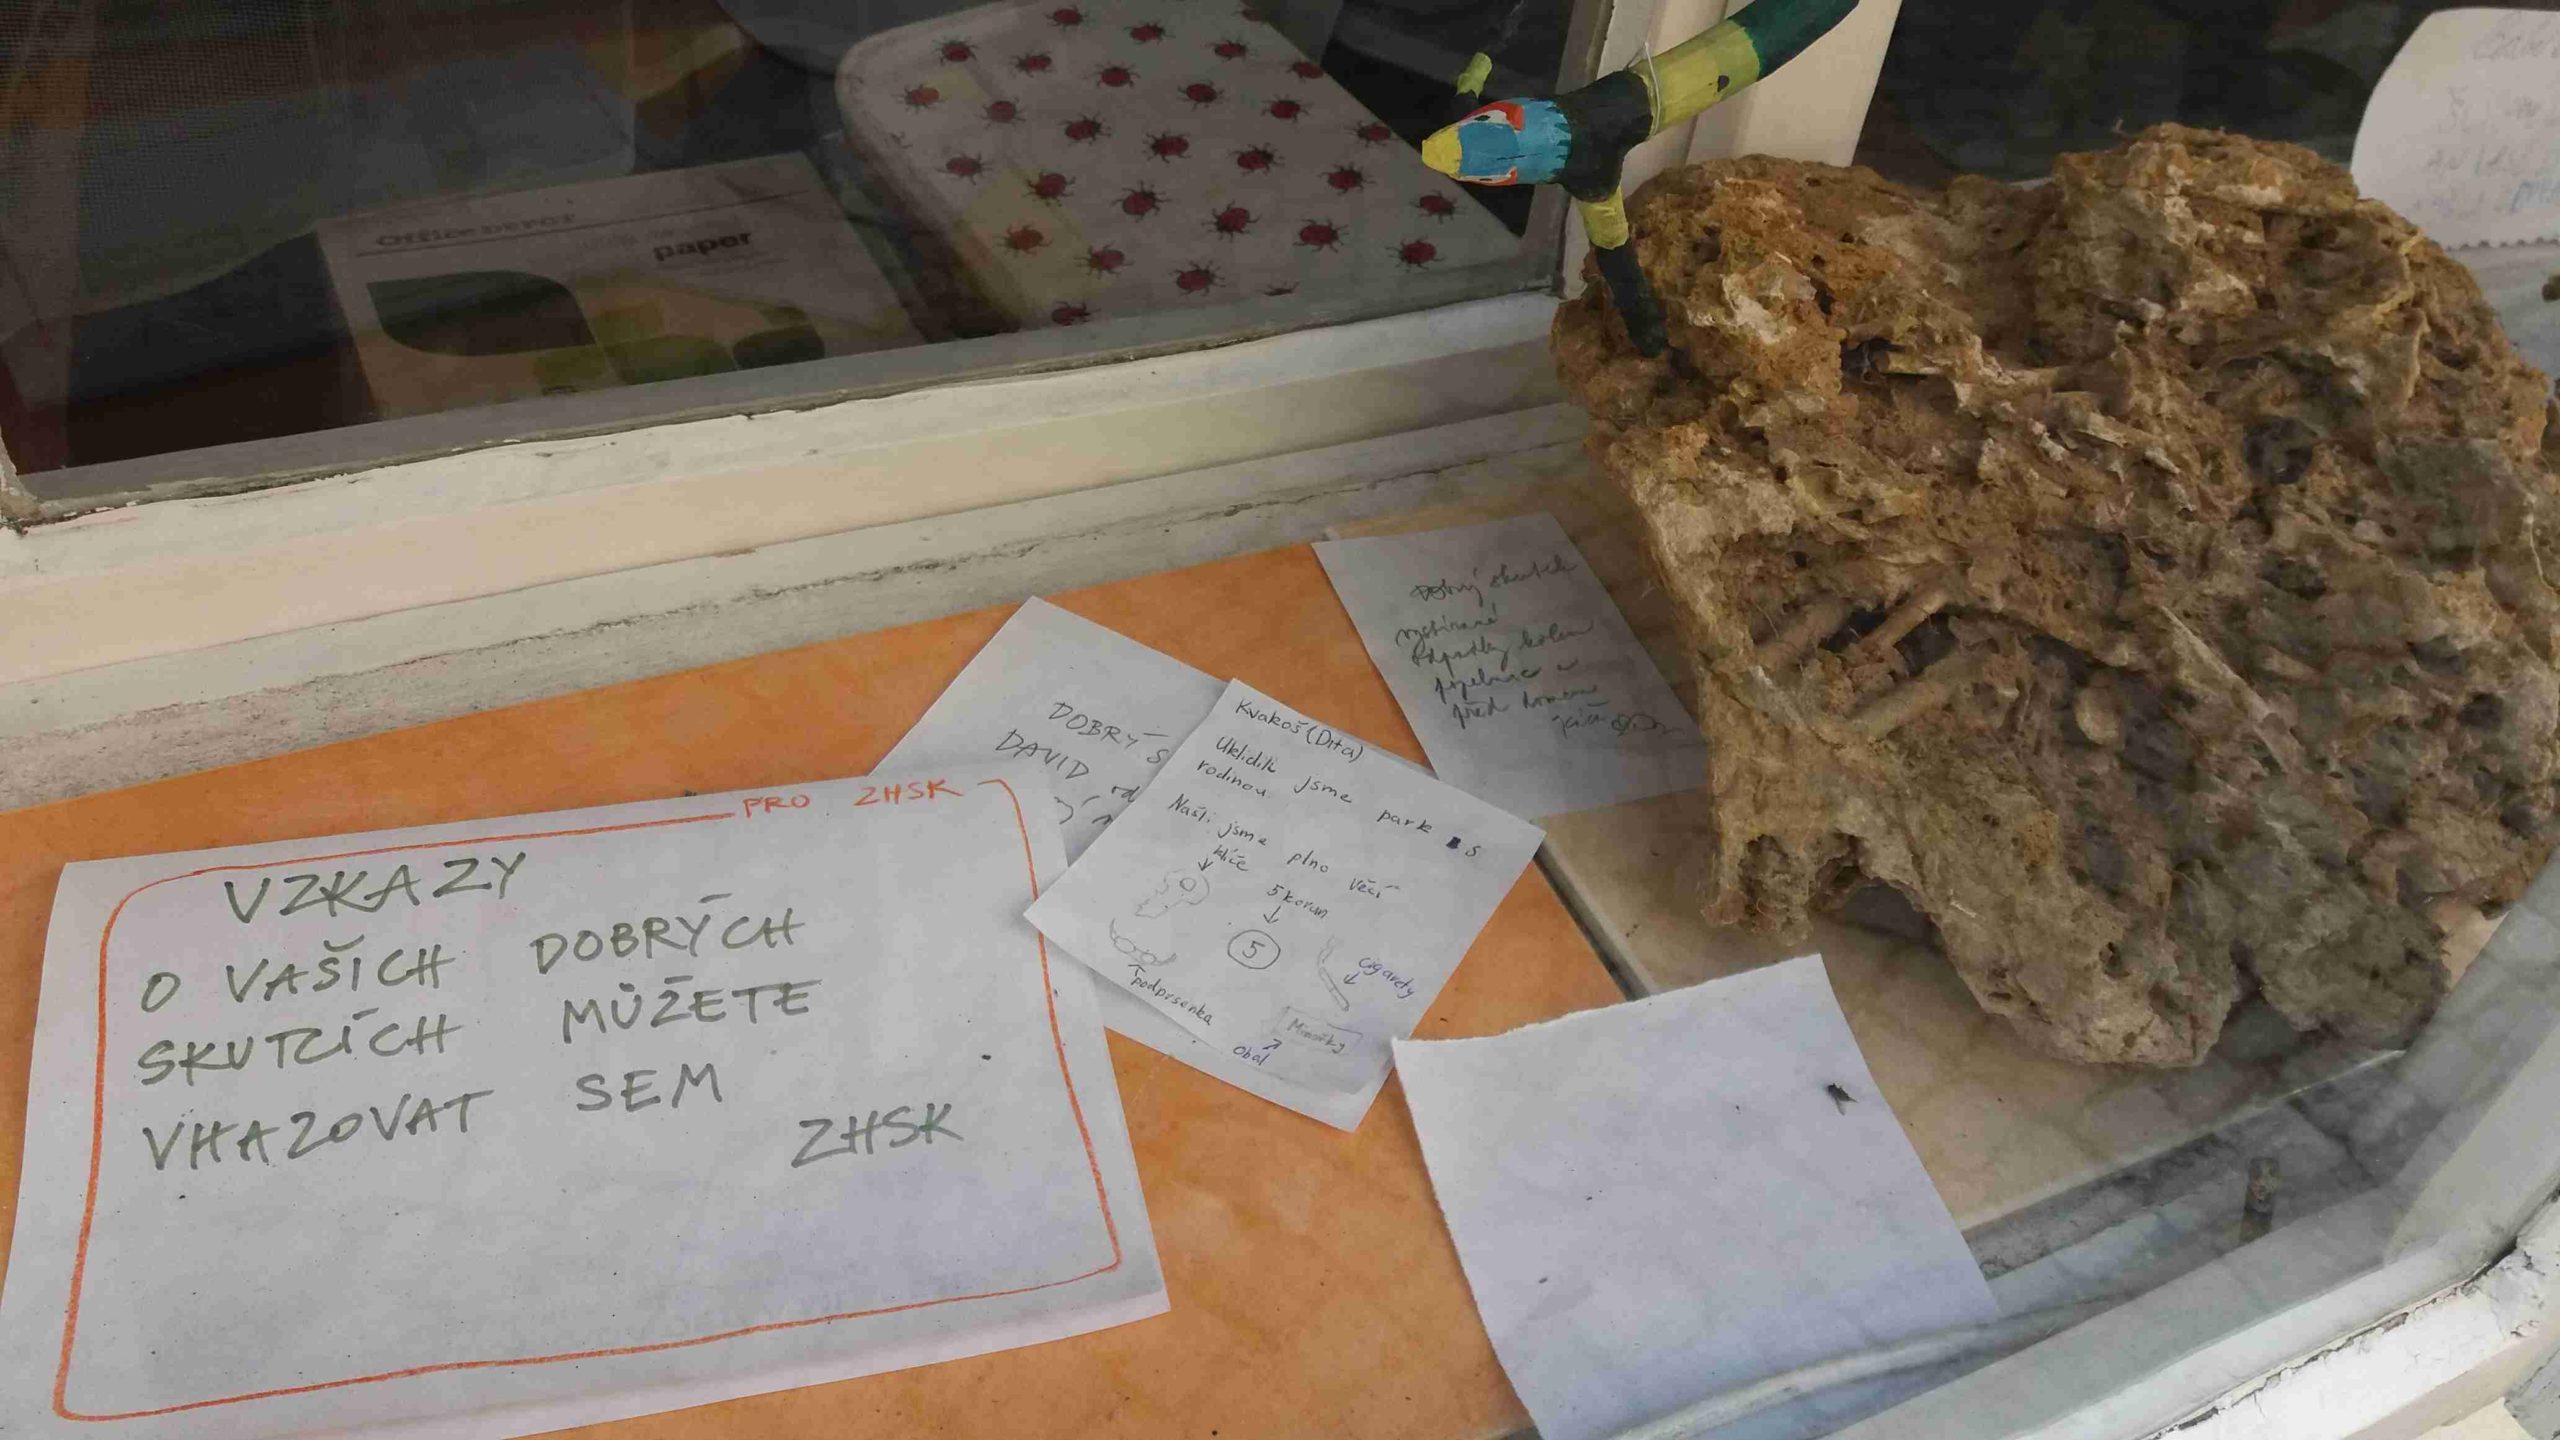 Office DEPOT
paper
PRO ZHSK
VZKAZY
O VAŠICH DOBRÝCH
SKUTCÍCH MŮŽETE
VHAZOVAT SEM
ZHSK
DOBRÝ S
DAVID
Kvakoš (Dita)
Uklidili jsme park s
rodinou.
Našli jsme plno věcí
klíče
5 korun
5
cigarety
podprsenka
obal
Dobrý skutek
odpadky kolem
před domem